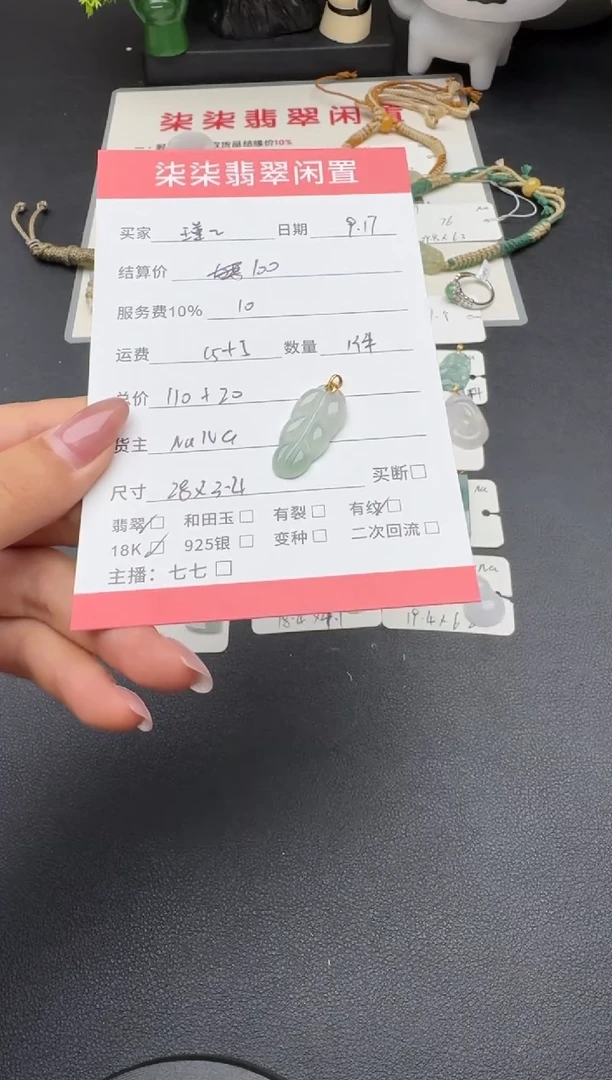 柒柒翡翠闲置
柒柒翡翠闲置
买家 瑾 日期 9.17
结算价 100
服务费10% 10
运费 15+5 数量 1件
总价 110+20
货主 NaNa
尺寸 28x3-4 买断
翡翠 和田玉 有裂 有纹
18K 925银 变种 二次回流
主播：七七
76
18.4
19.4x6